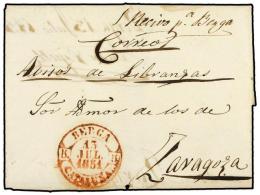 Correo
Avisos de Libranzas
Sor Admor de los de
Zaragoza
BERGA
13
JUL
1851
CATALUÑA